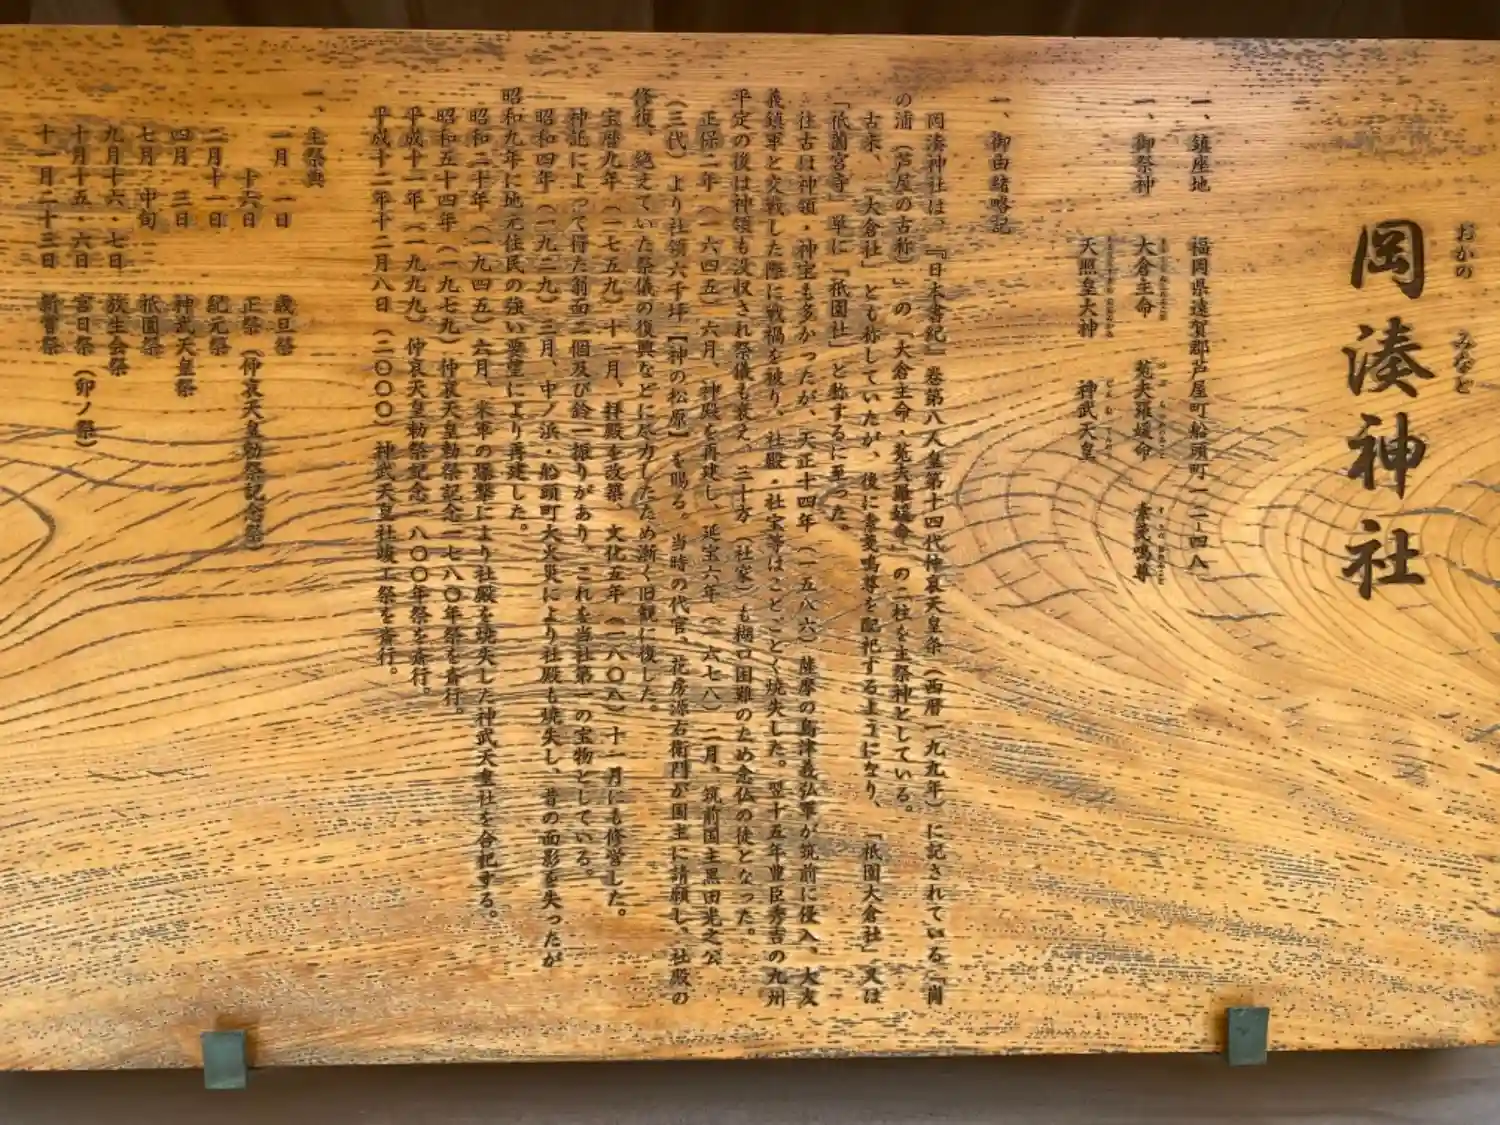 おかの みなと
岡湊神社
一、鎮座地 福岡県遠賀郡芦屋町船頭町一二-四八
一、御祭神 大倉主命 菟夫羅媛命 素戔嗚尊
天照皇大神 神武天皇
一、御由緒略記
岡湊神社は、『日本書紀』巻第八人皇第十四代仲哀天皇条（西暦一九九年）に記されている「崗
の浦（芦屋の古称）」の「大倉主命・菟夫羅媛命」の二柱を主祭神としている。
古来、「大倉社」とも称していたが、後に素戔嗚尊を配祀するようになり、「祇園大倉社」又は
「祇園宮寺」単に「祇園社」と称するに至った。
往古は神領・神宝も多かったが、天正十四年（一五八六）薩摩の島津義弘軍が筑前に侵入、大友
義鎮軍と交戦した際に戦禍を被り、社殿・社宝等はことごとく焼失した。翌十五年豊臣秀吉の九州
平定の後は神領も没収され祭儀も衰え、三十方（社家）も糊口困難のため念仏の徒となった。
正保二年（一六四五）六月、神殿を再建し、延宝六年（一六七八）二月、筑前国主黒田光之公
（三代）より社領六千坪【神の松原】を賜る。当時の代官、花房源右衛門が国主に請願し、社殿の
修復、絶えていた祭儀の復興などに尽力したため漸く旧観に復した。
宝暦九年（一七五九）十一月、拝殿を改築、文化五年（一八〇八）十一月にも修営した。
神託によって得た翁面二個及び鈴一振りがあり、これを当社第一の宝物としている。
昭和四年（一九二九）三月、中ノ浜・船頭町大火災により社殿も焼失し、昔の面影を失ったが
昭和九年に地元住民の強い要望により再建した。
昭和二十年（一九四五）六月、米軍の爆撃により社殿を焼失した神武天皇社を合祀する。
昭和五十四年（一九七九）仲哀天皇勅祭記念一七八〇年祭を斎行。
平成十一年（一九九九）仲哀天皇勅祭記念一八〇〇年祭を斎行。
平成十二年十二月八日（二〇〇〇）神武天皇社竣工祭を斎行。
一、主祭典
一月 一日 歳旦祭
十六日 正祭（仲哀天皇勅祭記念祭）
二月十一日 紀元祭
四月 三日 神武天皇祭
七月 中旬 祇園祭
九月十六・七日 放生会祭
十月十五・六日 宮日祭（卯ノ祭）
十一月二十三日 新嘗祭